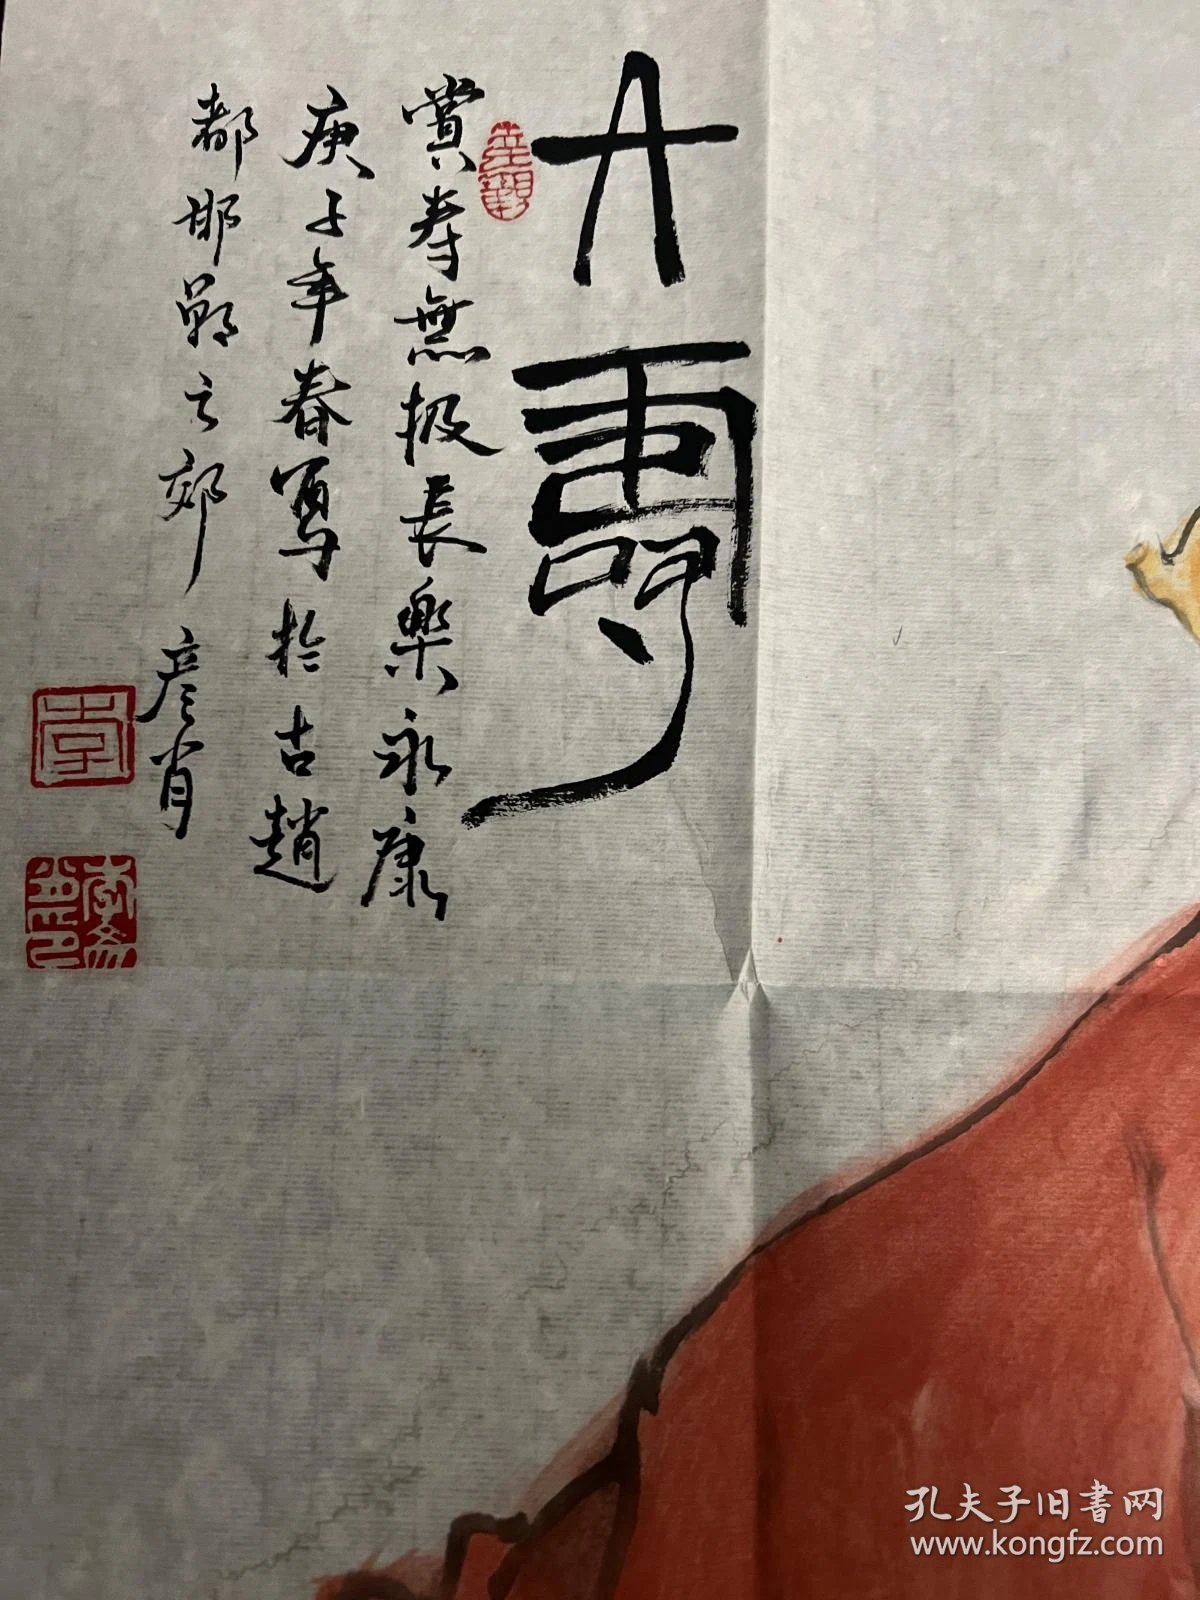 大壽
賞壽無极長樂永康
庚子年春写於古趙
都邯鄲之郊 彦肖
孔夫子旧書网
www.kongfz.com